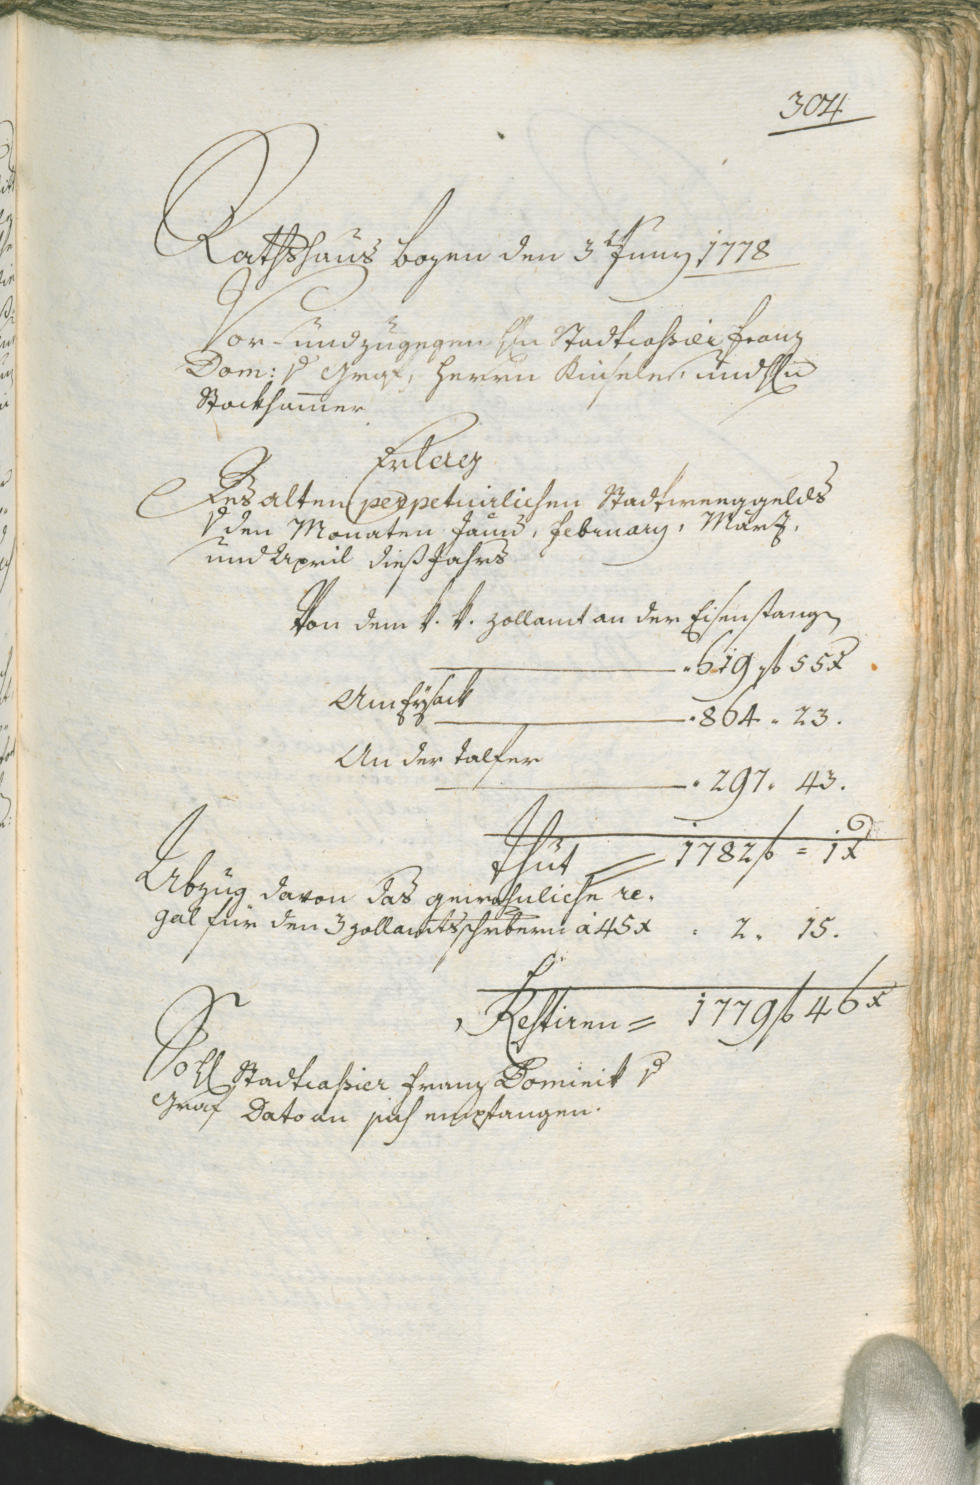 304
Rathshaus bozen den 3t Juny 1778
Vor- und zugegen Hn Stadtcassier Franz
Dom: v Graf, Herrn Kinseler, und Hn
Stockhamer
Erlereg
des alten perpetuirlichen Stadtweeggelds
v den Monaten Januar, february, März,
und April dieß Jahrs
Von dem k. k. zollamt an der Eisenstangen
619 f 55 x
Am Eysack
864 . 23 .
An der talfer
297 . 43 .
thut = 1782 f = 1 x
Abzug davon das gewohnliche re-
gal für den 3 zollamtsschribern à 45 x . 2 . 15 .
Restiren = 1779 f 46 x
Soll Stadtcassier Franz Dominik v
Graf Dato an sich empfangen.